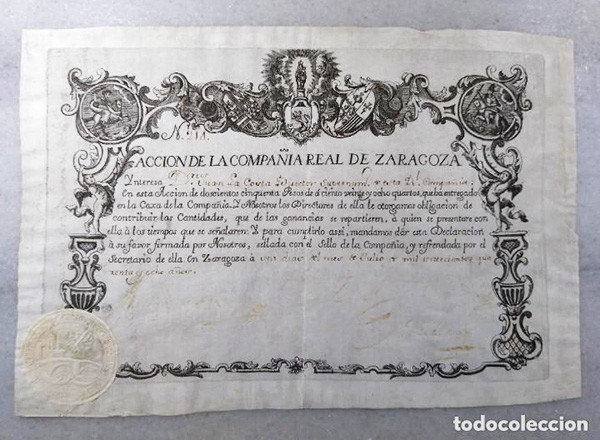 N.
ACCION DE LA COMPAÑIA REAL DE ZARAGOZA
Ynteresa Dn. Juan La Costa Director
En esta Accion de doscientos cinquenta Pesos de à ciento veinte y ocho quartos, que hà entregado
en la Caxa de la Compañia, Y Nosotros los Directores de ella le otorgamos obligacion de
contribuir las Cantidades, que de las ganancias se repartieren, à quien se presentare con
ella à los tiempos que se señalaren. Y para cumplirlo assi, mandamos dàr esta Declaracion
à su favor firmada por Nosotros, sellada con el Sello de la Compañia, y refrendada por el
Secretario de ella. En Zaragoza à dias del mes de Julio de mil setecientos qua
renta y ocho años.
todocoleccion